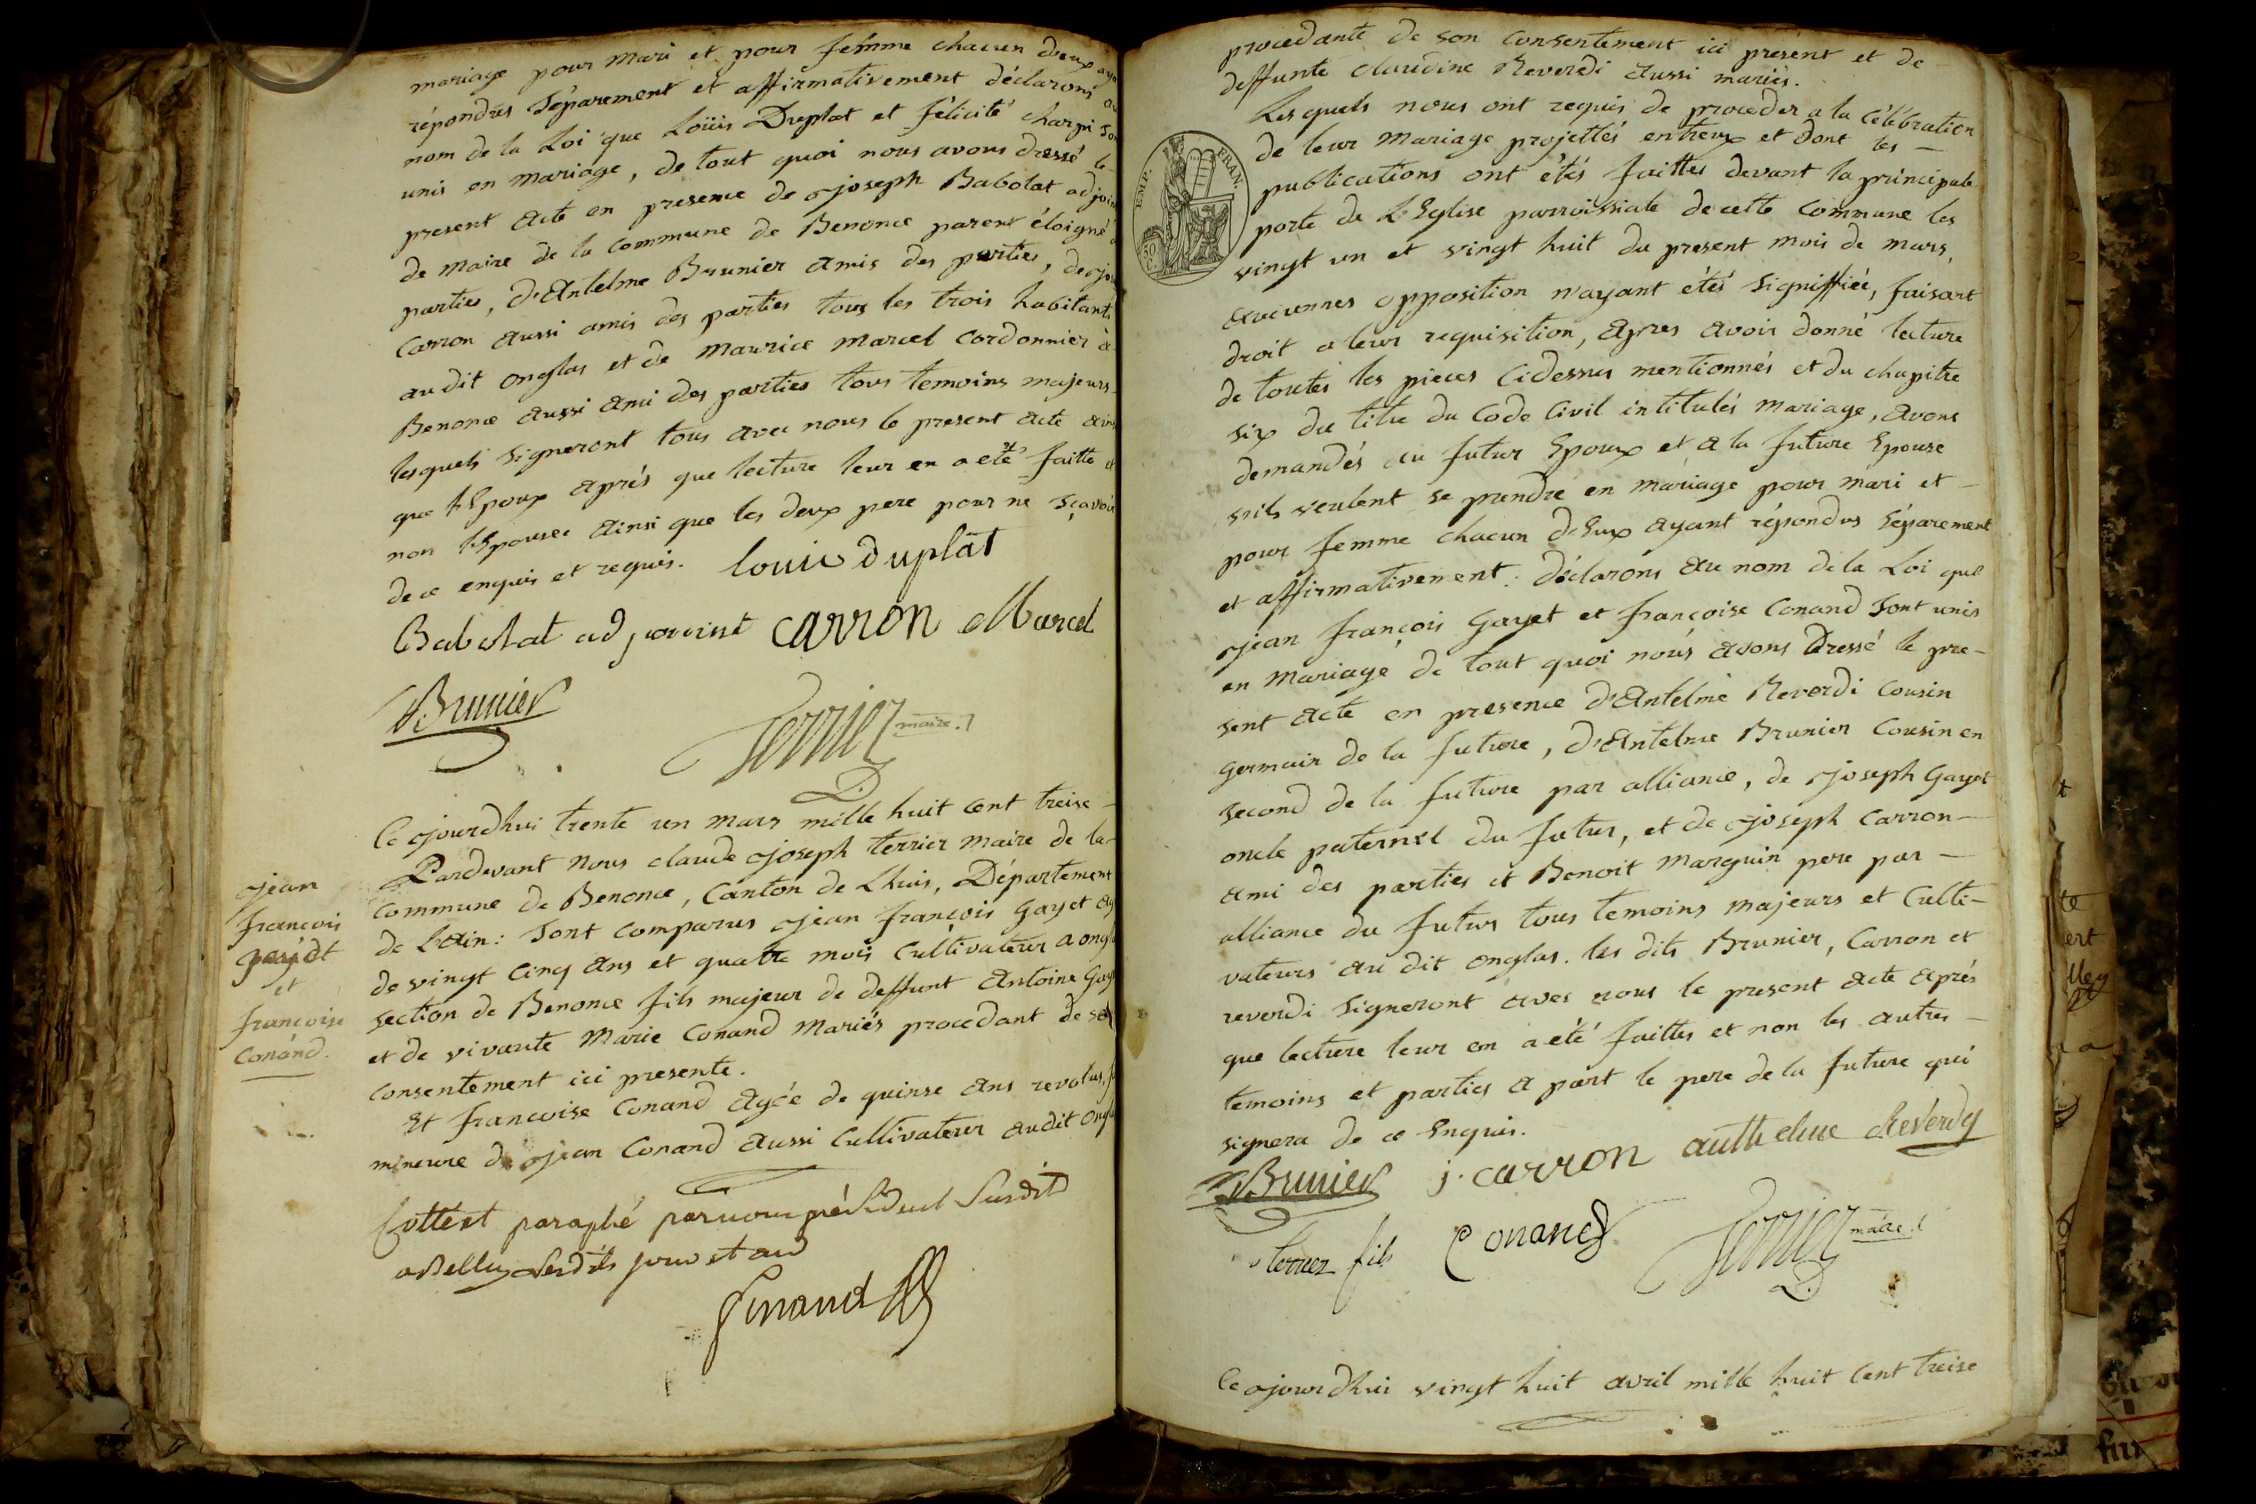 mariage pour mari et pour femme chacun d'eux aya
répondus séparement et affirmativement déclarons au
nom de la Loi que Loüis Duplat et félicité charpi son
unis en mariage, de tout quoi nous avons dressé le
present acte en presence de joseph Babolat adjoin
de maire de la commune de Benonce parent éloigné
parties, d'Antelme Brunier amis des parties, de jo
Carron aussi amis des parties tous les trois habitants
au dit onglas et de maurice marcel cordonnier à
Benonce aussi ami des parties tous temoins majeurs
lesquels signeront tous avec nous le present acte
que l'Epoux après que lecture leur en a eté faitte et
non l'Epouse ainsi que les deux pere pour ne sçavoir
de ce enquis et requis. louis duplat
Babolat adjoint carron Marcel
Brunier
Terrier maire
Ce jourdhui trente un mars mille huit cent treise
Pardevant nous claude joseph terrier maire de la
commune de Benonce, Canton de Lhuis, Département
de L'ain: sont comparus jean françois Gayet ag
de vingt cinq ans et quatre mois cultivateur a ongl
section de Benonce fils majeur de deffunt Antoine Gay
et de vivante Marie Conand mariés procedant de
consentement ici presente.
Et francoise Conand agée de quinse ans revolus,
mineure de jean Conand aussi cultivateur audit ongl
jean
francois
gayet
et
francoise
Conand.
Cotté et paraphé par nous président susdit
a Belley lesdits jour et an
procedante de son consentement ici present et de
deffunte claudine Reverdi aussi mariés.
Les quels nous ont requis de proceder a la célébration
de leur mariage projettés entreux et dont les
publications ont étés faittes devant la principale
porte de L'Eglise parroissiale de cette commune les
vingt un et vingt huit du present mois de mars,
aucunnes opposition n'ayant étés signiffiée, faisant
droit a leur requisition, apres avoir donné lecture
de toutes les pieces cidessus mentionnés et du chapitre
six du titre du Code Civil intitulés mariage, avons
demandés au futur Epoux et a la future Epouse
s'ils veulent se prendre en mariage pour mari et
pour femme chacun d'Eux ayant répondus séparement
et affirmativement: déclarons au nom de la Loi que
jean françois Gayet et françoise Conand sont unis
en mariage de tout quoi nous avons dressé le pre-
sent acte en presence d'Antelme Reverdi cousin
germain de la future, d'Antelme Brunier Cousin en
second de la future par alliance, de joseph Gayet
oncle paternel du futur, et de joseph Carron
ami des parties et Benoit Marguin pere par
alliance du futur tous temoins majeurs et Culti-
vateurs au dit onglas. les dits Brunier, Carron et
reverdi signeront avec nous le present acte après
que lecture leur en a été faittes et non les autres
temoins et parties a part le pere de la future qui
signera de ce Enquis.
Brunier j. carron anthelme Reverdy
terrier fils Conand Terrier maire
Ce jourdhui vingt huit avril mille huit cent treise
EMP. FRAN.
50 C.